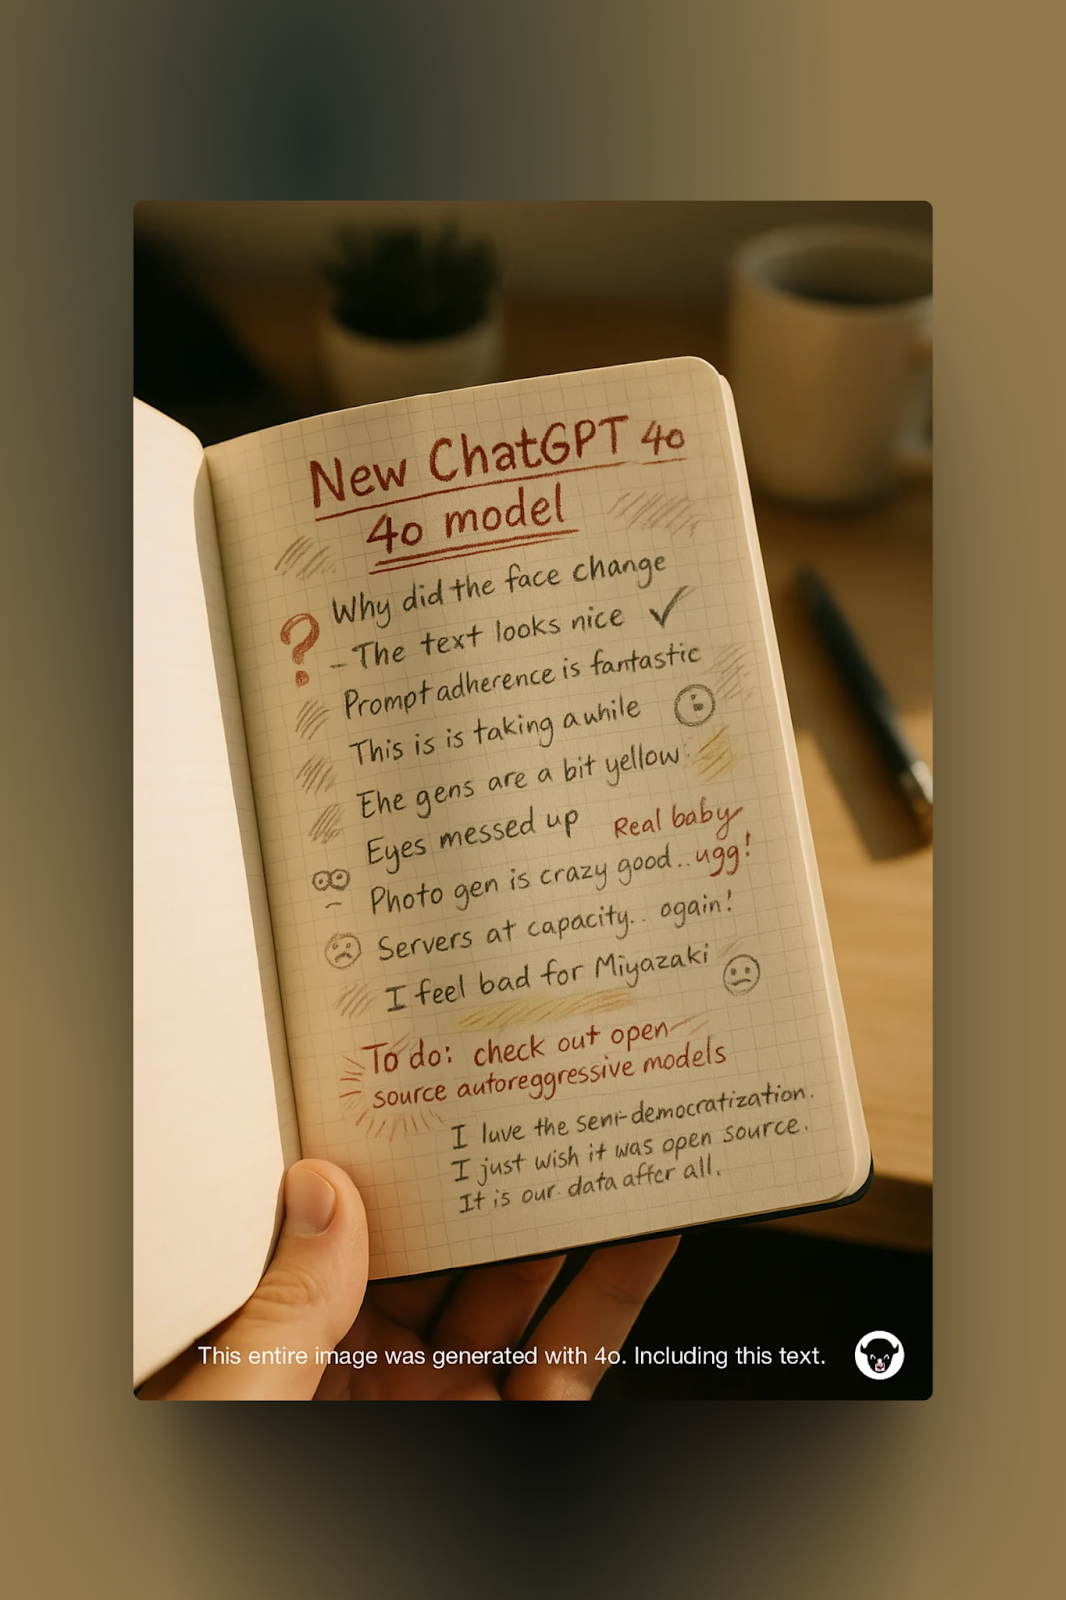 New ChatGPT 4o
4o model
Why did the face change
? - The text looks nice ✓
Prompt adherence is fantastic
This is is taking awhile
Ehe gens are a bit yellow
Eyes messed up
Real baby
Photo gen is crazy good.. ugg!
Servers at capacity.. ogain!
I feel bad for Miyazaki
To do: check out open
source autoreggressive models
I luve the semi-democratization.
I just wish it was open source.
It is our data affcr all.
This entire image was generated with 4o. Including this text.